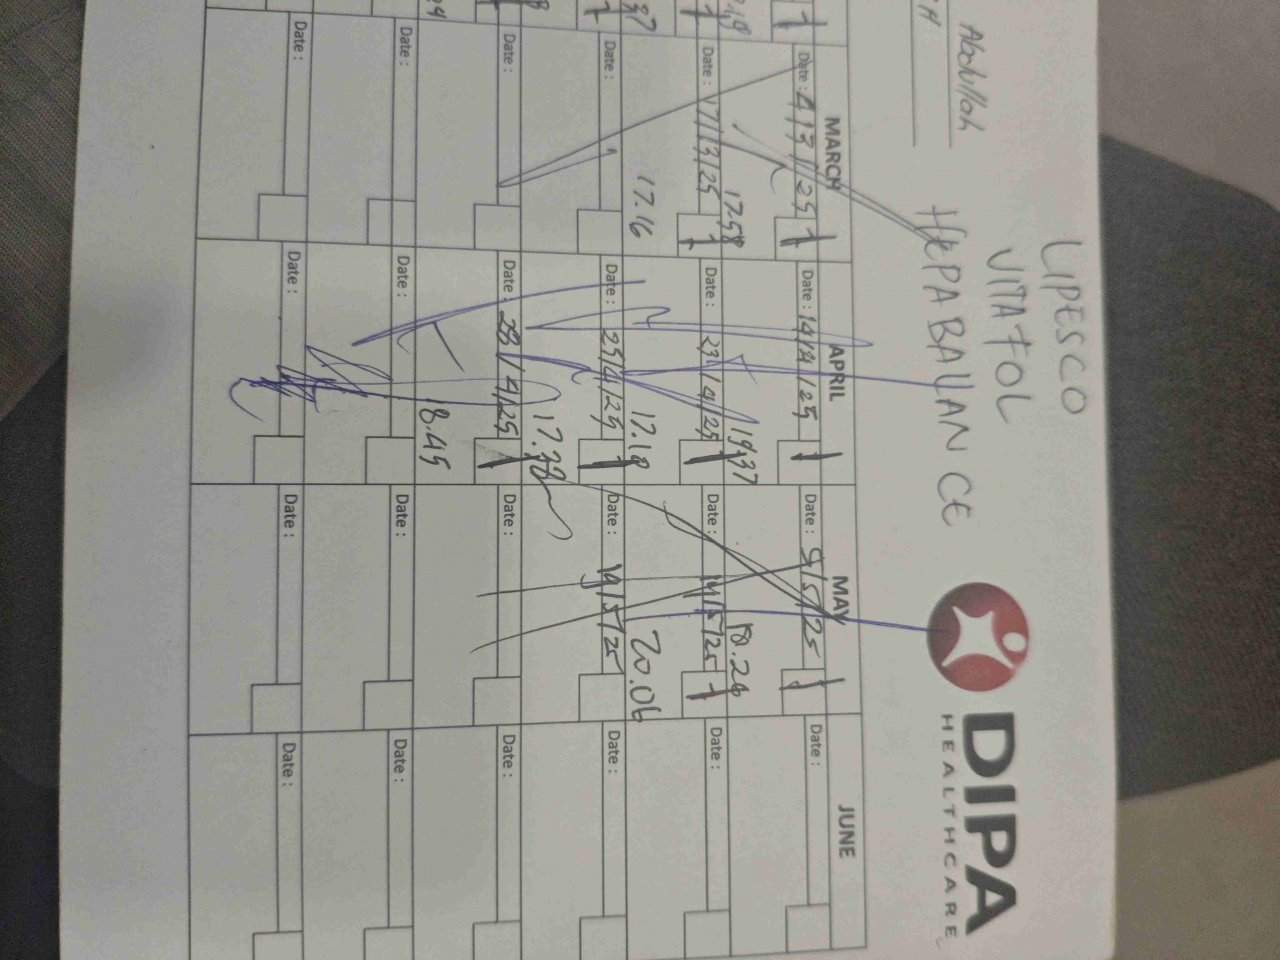 LIPESCO
VITAFOL
HEPABALLANCE
Abdullah
DIPA
HEALTHCARE
MARCH APRIL MAY JUNE
Date: 4/3/25 1 Date: 14/4/25 1 Date: 5/5/25 1 Date:
17.58 19.37
Date: 17/3/25 1 Date: 23/4/25 1 Date: 14/5/25 1 Date:
17.16 17.18 20.06
Date: Date: 25/4/25 1 Date: 19/5/25 Date:
Date: Date: 28/4/25 1 Date: Date:
Date: Date: Date: Date:
Date: Date: Date: Date: